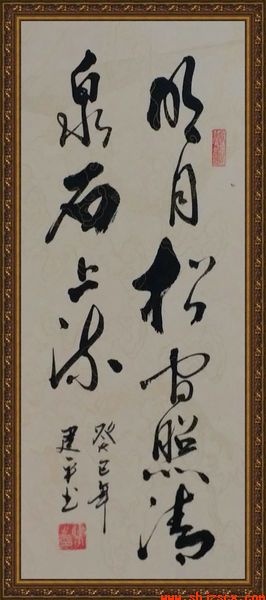 明月松间照清
泉石上流
癸巳年
建平书